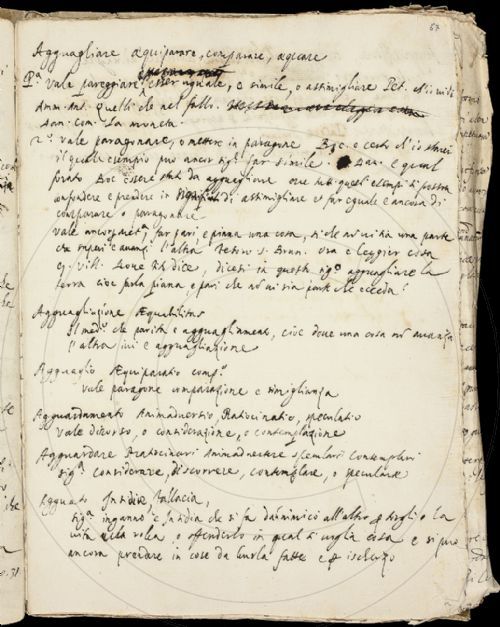 67
Agguagliare æquiparare, comparare, æquare
Pª. vale pareggiare, esser uguale, o simile, o assimigliare Pet. ch'i vidi
Amm. Ant. quelli che nel fallo.
Dan. com. La moneta.
2º. vale paragonare, o mettere in paragone Boc. e certo ch'io starei
il quale esempio può ancor sigª. far simile. Dan. e qual
forato Boc. essere da agguaglione ove tutti questi esempi si possono
confondere e prendere in di assimigliare o far eguale e ancora di
comparare o paragonare
vale ancora far pari e piana una cosa, sì che non vi sia una parte
che superi e avanzi l'altra Tesoro S. Brun. ora è leggier cosa
Vill. Dove dice, dicesi in questo sigº. agguagliare la
terra cioè farla piana, e pari che non vi sia parte che ecceda
Agguagliazione Æquabilitas
Il medº. che parità e agguagliamento, cioè dove una cosa non avanza
l'altra ivi è agguagliazione
Agguaglio Æquiparatio comp.º
vale paragone comparazione e simiglianza
Agguardamento Animadversio, Ratiocinatio, speculatio
vale discorso, o considerazione, o contemplazione
Agguardare Ratiocinari Animadvertere speculari Contemplari
sigª. considerare, discorrere, contemplare, o speculare
Agguato Insidie fallacia,
sigª. inganno e insidia che si fa dal nimico all'altro togli la
vita nella roba, o offenderlo in qual si voglia cosa e si può
ancora prendere in cose da burla fatte e ischerzo